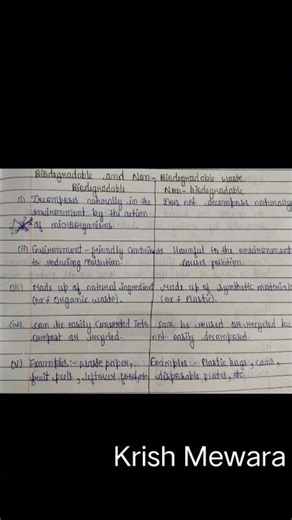 Biodegradable and Non-Biodegradable waste
Biodegradable Non-biodegradable
(i) Decomposes naturally in the Does not decompose naturally
environment by the action
of microorganisms
(ii) Environment-friendly contribute Harmful to the environment
to reducing pollution. causes pollution.
(iii) Made up of natural ingredient Made up of synthetic materials
(or of organic waste). (or of Plastic).
(iv). can be easily converted into can be reused or recycled but
compost or recycled. not easily decomposed.
(v) Examples:- waste paper, Examples:- Plastic bags, cans,
fruit peels, leftover food, etc disposable plates, etc
Krish Mewara